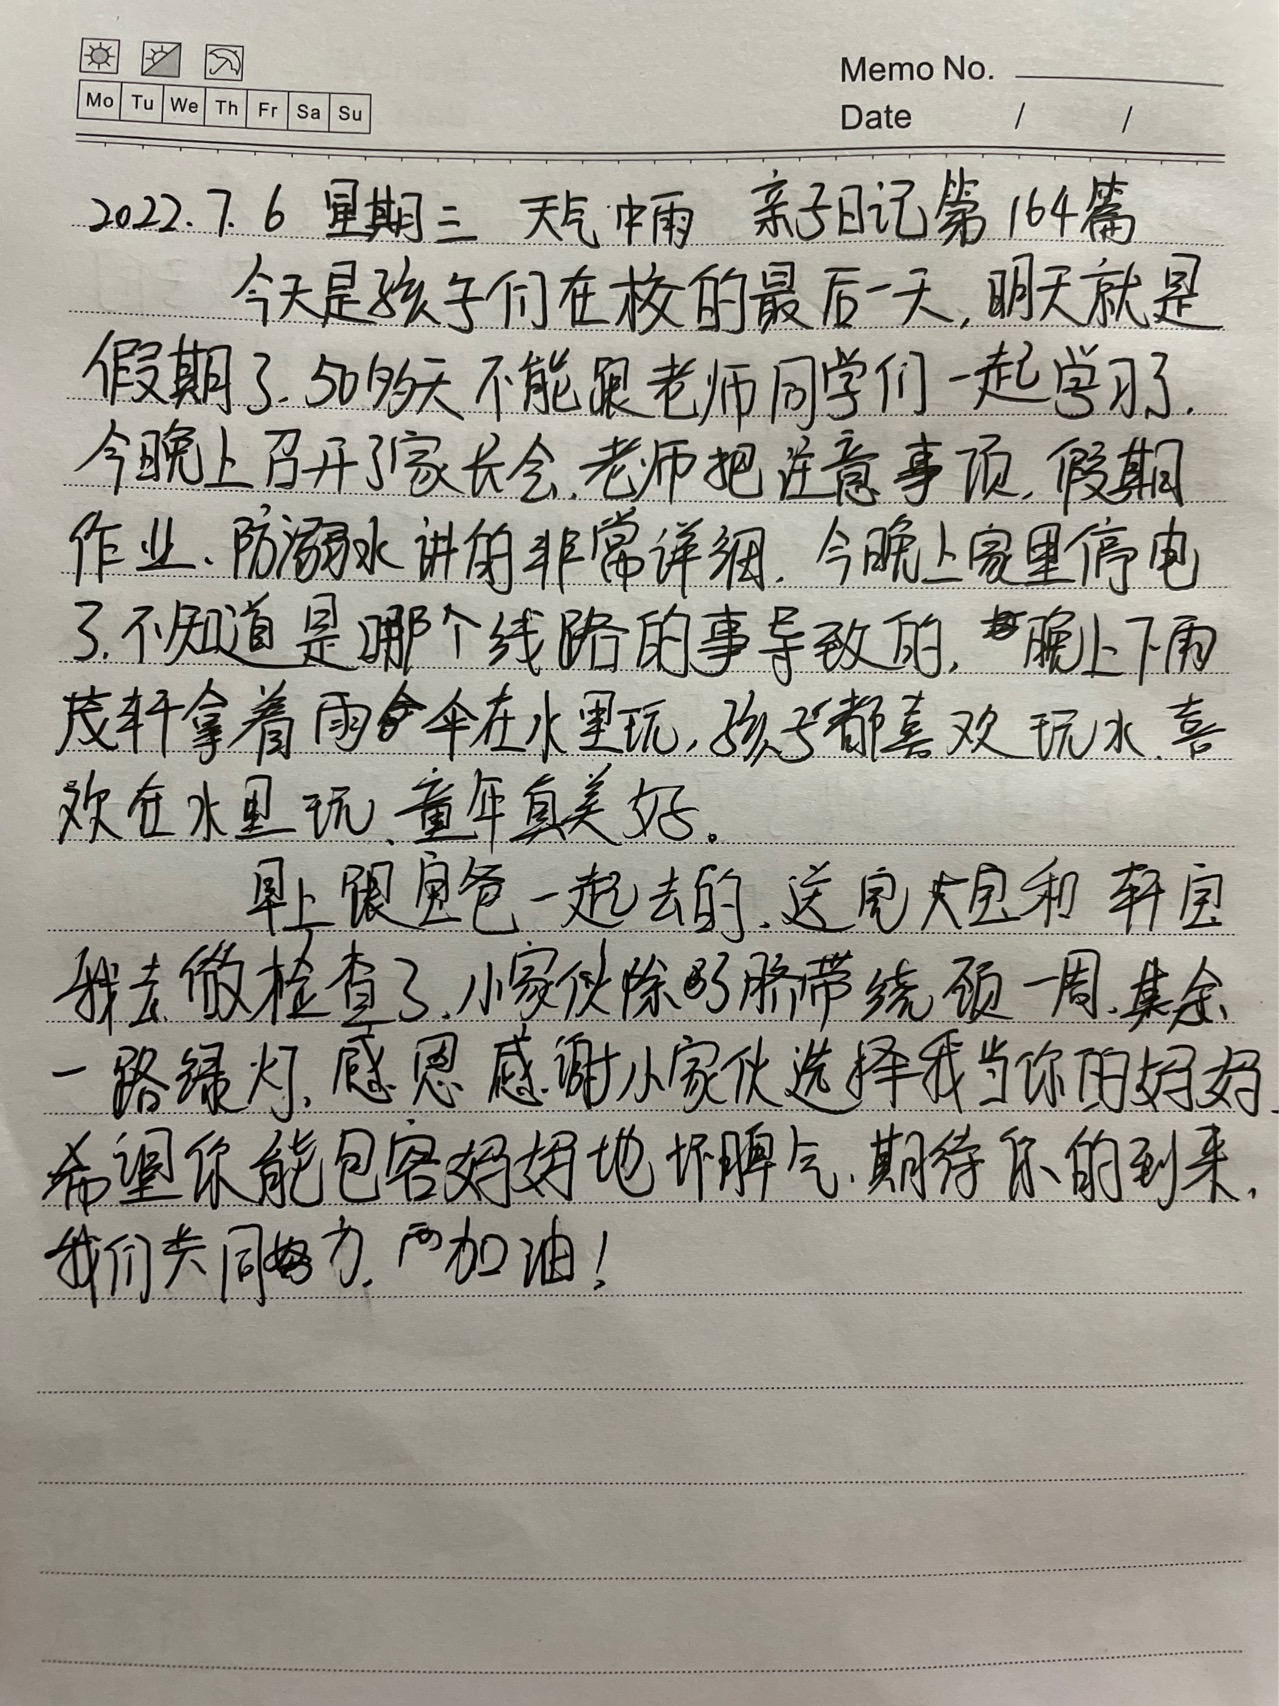 Memo No.
Mo Tu We Th Fr Sa Su
Date / /
2022.7.6 星期三 天气中雨 亲子日记第164篇
今天是孩子们在校的最后一天,明天就是
假期了、50多天不能跟老师同学们一起学习了.
今晚上召开了家长会.老师把注意事项.假期
作业、防溺水讲的非常详细.今晚上家里停电
了.不知道是哪个线路的事导致的,晚上下雨
茂轩拿着雨伞在水里玩,孩子都喜欢玩水.喜
欢在水里玩、童年真美好。
早上跟宝爸一起去的.送完大宝和轩宝
我去做检查了.小家伙除了脐带绕颈一周.其余
一路绿灯.感恩感谢小家伙选择我当你的妈妈.
希望你能包容妈妈地坏脾气.期待你的到来,
我们共同努力.加油!